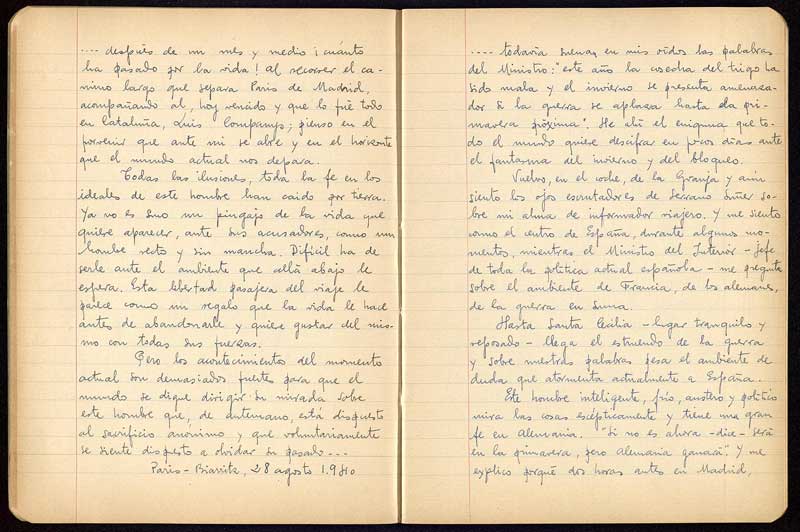 .... después de un mes y medio ¡cuánto
ha pasado por la vida! Al recorrer el ca-
mino largo que separa Paris de Madrid,
acompañando al, hoy vencido y que lo fué todo
en Cataluña, Luis Companys; pienso en el
porvenir que ante mi se abre y en el horizonte
que el mundo actual nos depara.
Todas las ilusiones, toda la fe en los
ideales de este hombre han caido por tierra.
Ya no es sino un pingajo de la vida que
quiere aparecer, ante sus acusadores, como un
hombre recto y sin mancha. Difícil ha de
serle ante el ambiente que allá abajo le
espera. Esta libertad pasajera del viaje le
parece como un regalo que la vida le hace
antes de abandonarle y quiere gustar del mis-
mo con todas sus fuerzas.
Pero los acontecimientos del momento
actual son demasiados fuertes para que el
mundo se digne dirigir su mirada sobre
este hombre que, de antemano, está dispuesto
al sacrificio anonimo y que voluntariamente
se siente dispuesto a olvidar su pasado...
Paris - Biarritz, 28 agosto 1.940
.... todavía suenan en mis oídos las palabras
del Ministro: "este año la cosecha del trigo ha
sido mala y el invierno se presenta amenaza-
dor si la guerra se aplaza hasta la pri-
mavera próxima". He ahí el enigma que to-
do el mundo quiere descifrar en pocos días ante
el fantasma del invierno y del bloqueo.
Vuelvo, en el coche, de la Granja y aún
siento los ojos escrutadores de Serrano Suñer so-
bre mi alma de informador viajero. Y me siento
como el centro de España, durante algunos mo-
mentos, mientras el Ministro del Interior - jefe
de toda la politica actual española - me pregunta
sobre el ambiente de Francia, de los alemanes,
de la guerra en suma.
Hasta Santa Cecilia - lugar tranquilo y
reposado - llega el estruendo de la guerra
y sobre nuestras palabras pesa el ambiente de
duda que atormenta actualmente a España.
Este hombre inteligente, frio, austero y politico
mira las cosas escépticamente y tiene una gran
fe en Alemania. "Si no es ahora - dice - será
en la primavera, pero Alemania ganará". Y me
explico porqué dos horas antes en Madrid,